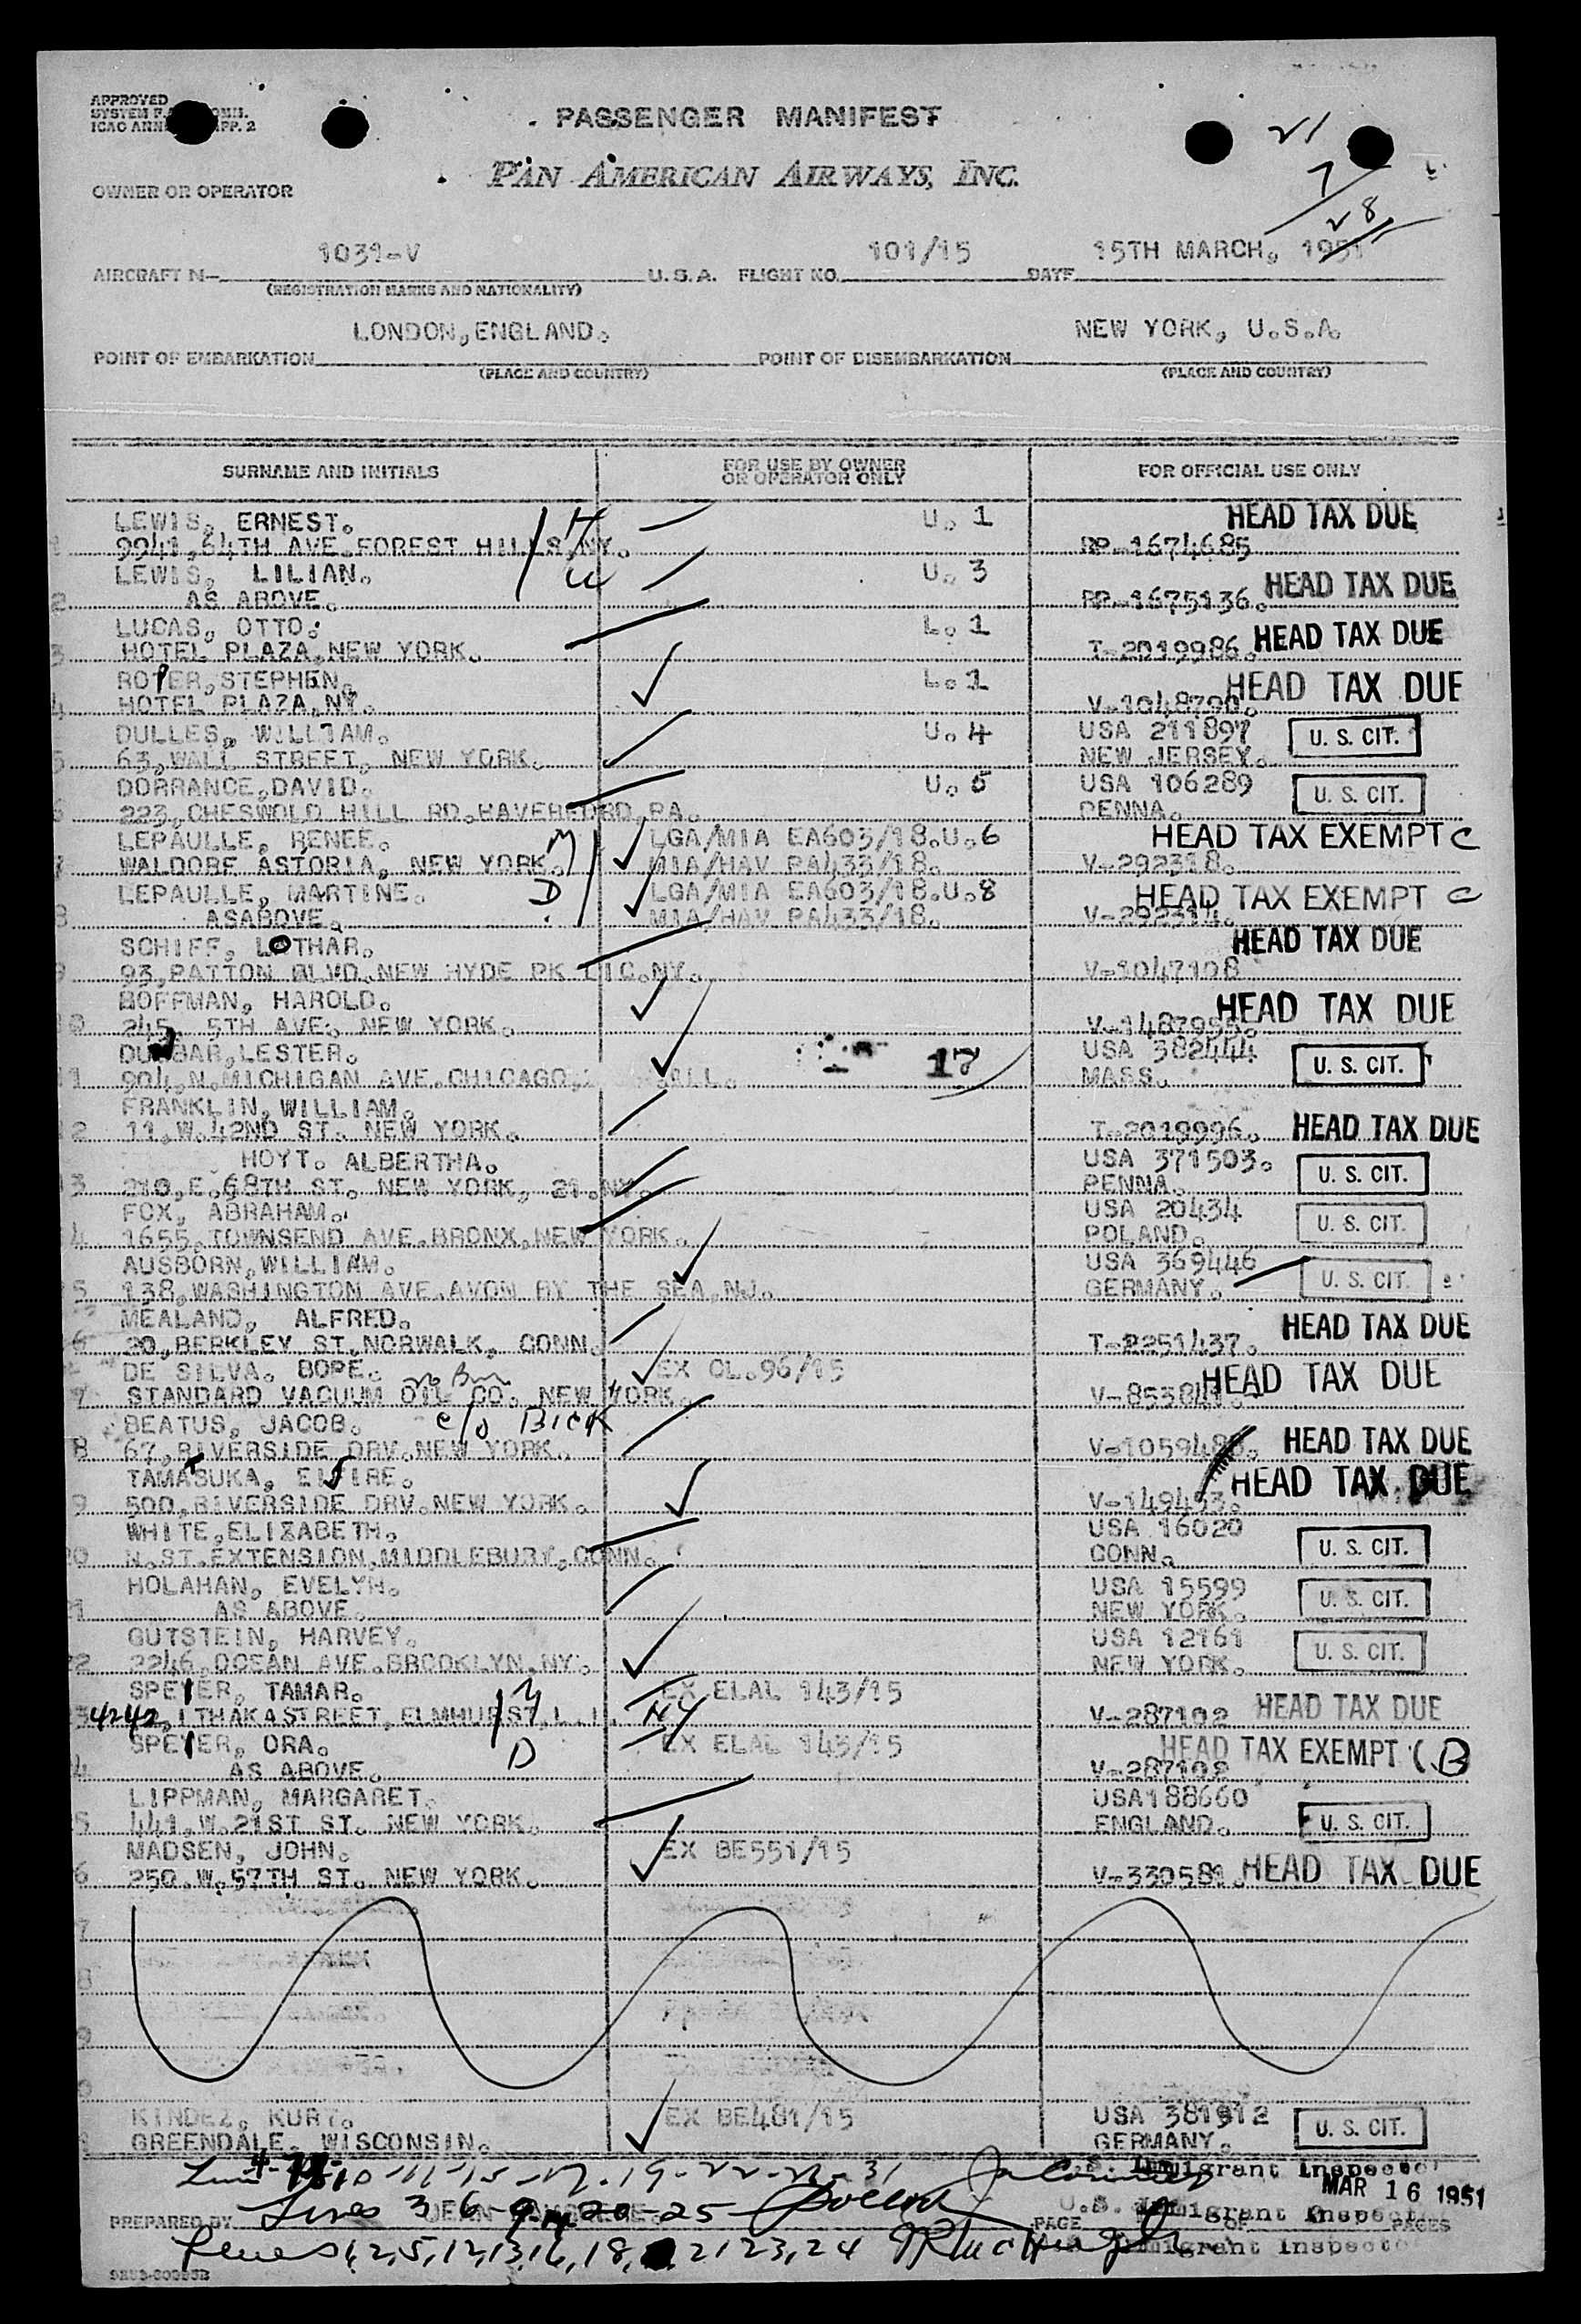 APPROVED
SYSTEM F.
ICAO ANN PP. 2
PASSENGER MANIFEST
PAN AMERICAN AIRWAYS, INC.
OWNER OR OPERATOR
21
7
28
1031-V 101/15 15TH MARCH, 1951
AIRCRAFT N- U. S. A. FLIGHT NO. DATE
(REGISTRATION MARKS AND NATIONALITY)
LONDON, ENGLAND. NEW YORK, U.S.A.
POINT OF EMBARKATION POINT OF DISEMBARKATION
(PLACE AND COUNTRY) (PLACE AND COUNTRY)
SURNAME AND INITIALS FOR USE BY OWNER OR OPERATOR ONLY FOR OFFICIAL USE ONLY
LEWIS, ERNEST. H U. 1 HEAD TAX DUE
1 9941, 64TH AVE. FOREST HILLS, NY. RP-1674685
LEWIS, LILIAN. W U. 3
2 AS ABOVE. RP-1675136. HEAD TAX DUE
LUCAS, OTTO. L. 1
3 HOTEL PLAZA, NEW YORK. T-2019986. HEAD TAX DUE
ROPER, STEPHEN. L. 1 HEAD TAX DUE
4 HOTEL PLAZA, NY. V-1048790.
DULLES, WILLIAM. U. 4 USA 211897 U. S. CIT.
5 63, WALL STREET, NEW YORK. NEW JERSEY.
DORRANCE, DAVID. U. 5 USA 106289 U. S. CIT.
6 223, CHESWOLD HILL RD. HAVERFORD, PA. PENNA.
LEPAULLE, RENEE. M LGA/MIA EA603/18. U. 6 HEAD TAX EXEMPT C
7 WALDORF ASTORIA, NEW YORK. MIA/HAV PA433/18. V-292318.
LEPAULLE, MARTINE. D LGA/MIA EA603/18. U. 8 HEAD TAX EXEMPT C
8 ASABOVE. MIA/HAV PA433/18. V-292314.
SCHIFF, LOTHAR. HEAD TAX DUE
9 93, PATTON BLVD. NEW HYDE PK LIC. NY. V-1047108
BOFFMAN, HAROLD. HEAD TAX DUE
10 245, 5TH AVE. NEW YORK. V-1487995.
DUNBAR, LESTER. 17 USA 382444 U. S. CIT.
11 904, N. MICHIGAN AVE. CHICAGO, ILL. MASS.
FRANKLIN, WILLIAM.
12 11, W. 42ND ST. NEW YORK. T-2019996. HEAD TAX DUE
HOYT. ALBERTHA. USA 371503. U. S. CIT.
13 210, E. 68TH ST. NEW YORK, 21. NY. PENNA.
FOX, ABRAHAM. USA 20434 U. S. CIT.
14 1655, TOWNSEND AVE. BRONX, NEW YORK. POLAND.
AUSBORN, WILLIAM. USA 369446 U. S. CIT.
15 138, WASHINGTON AVE. AVON BY THE SEA, NJ. GERMANY.
MEALAND, ALFRED. HEAD TAX DUE
16 20, BERKLEY ST. NORWALK, CONN. T-2251437.
DE SILVA. BOPE. EX OL. 96/15 HEAD TAX DUE
17 STANDARD VACUUM OIL CO. NEW YORK. 26 Bway
BEATUS, JACOB. c/o BICK
18 67, RIVERSIDE DRV. NEW YORK. HEAD TAX DUE
TAMASUKA, HEAD TAX DUE
19 500, RIVERSIDE DRV. NEW YORK.
WHITE, ELIZABETH. USA 16020 U. S. CIT.
20 N. ST. EXTENSION, MIDDLEBURY, CONN. CONN.
HOLAHAN, EVELYN. USA 15599 U. S. CIT.
21 AS ABOVE. NEW YORK.
GUTSTEIN, HARVEY. USA 12161 U. S. CIT.
22 2246, OCEAN AVE. BROOKLYN, NY. NEW YORK.
SPEYER, TAMAR. M EX ELAL 143/15
23 4242, ITHAKASTREET, ELMHURST, L.I. NY V-287102 HEAD TAX DUE
SPEYER, ORA. D EX ELAL 143/15 HEAD TAX EXEMPT (B
24 AS ABOVE. V-287102
LIPPMAN, MARGARET. USA188660 U. S. CIT.
25 441, W. 21ST ST. NEW YORK. ENGLAND.
MADSEN, JOHN. EX BE551/15
26 250, W. 57TH ST. NEW YORK. V-330581. HEAD TAX DUE
7
8
9
0
KINDEZ, KURT. EX BE481/15 USA 381912 U. S. CIT.
GREENDALE, WISCONSIN. GERMANY.
10-11-15-17-19-22-26-31 Immigrant Inspector
MAR 16 1951
Lines 3 6-9-14-20-25 U.S. Immigrant Inspector
PREPARED BY PAGE OF PAGES
Lines 1, 2, 5, 12, 13, 16, 18, 21 23, 24 Immigrant Inspector